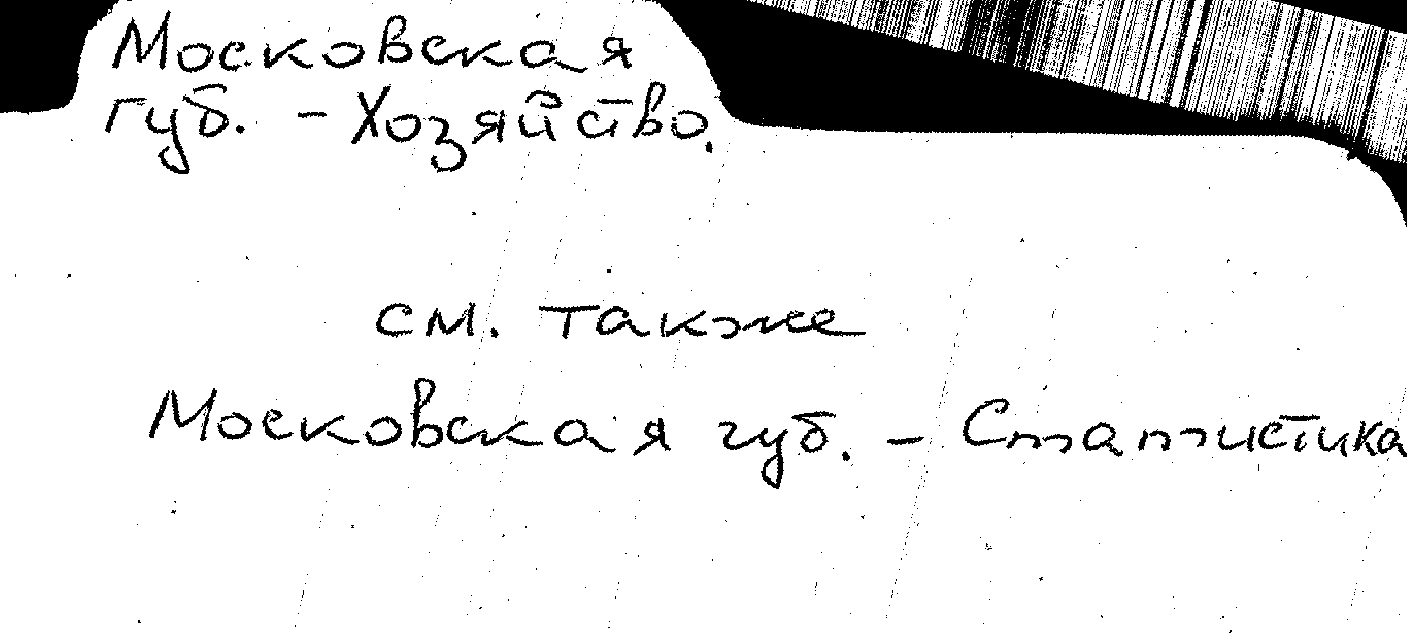 Московская
губ. - Хозяйство.
см. также
Московская губ. - Статистика